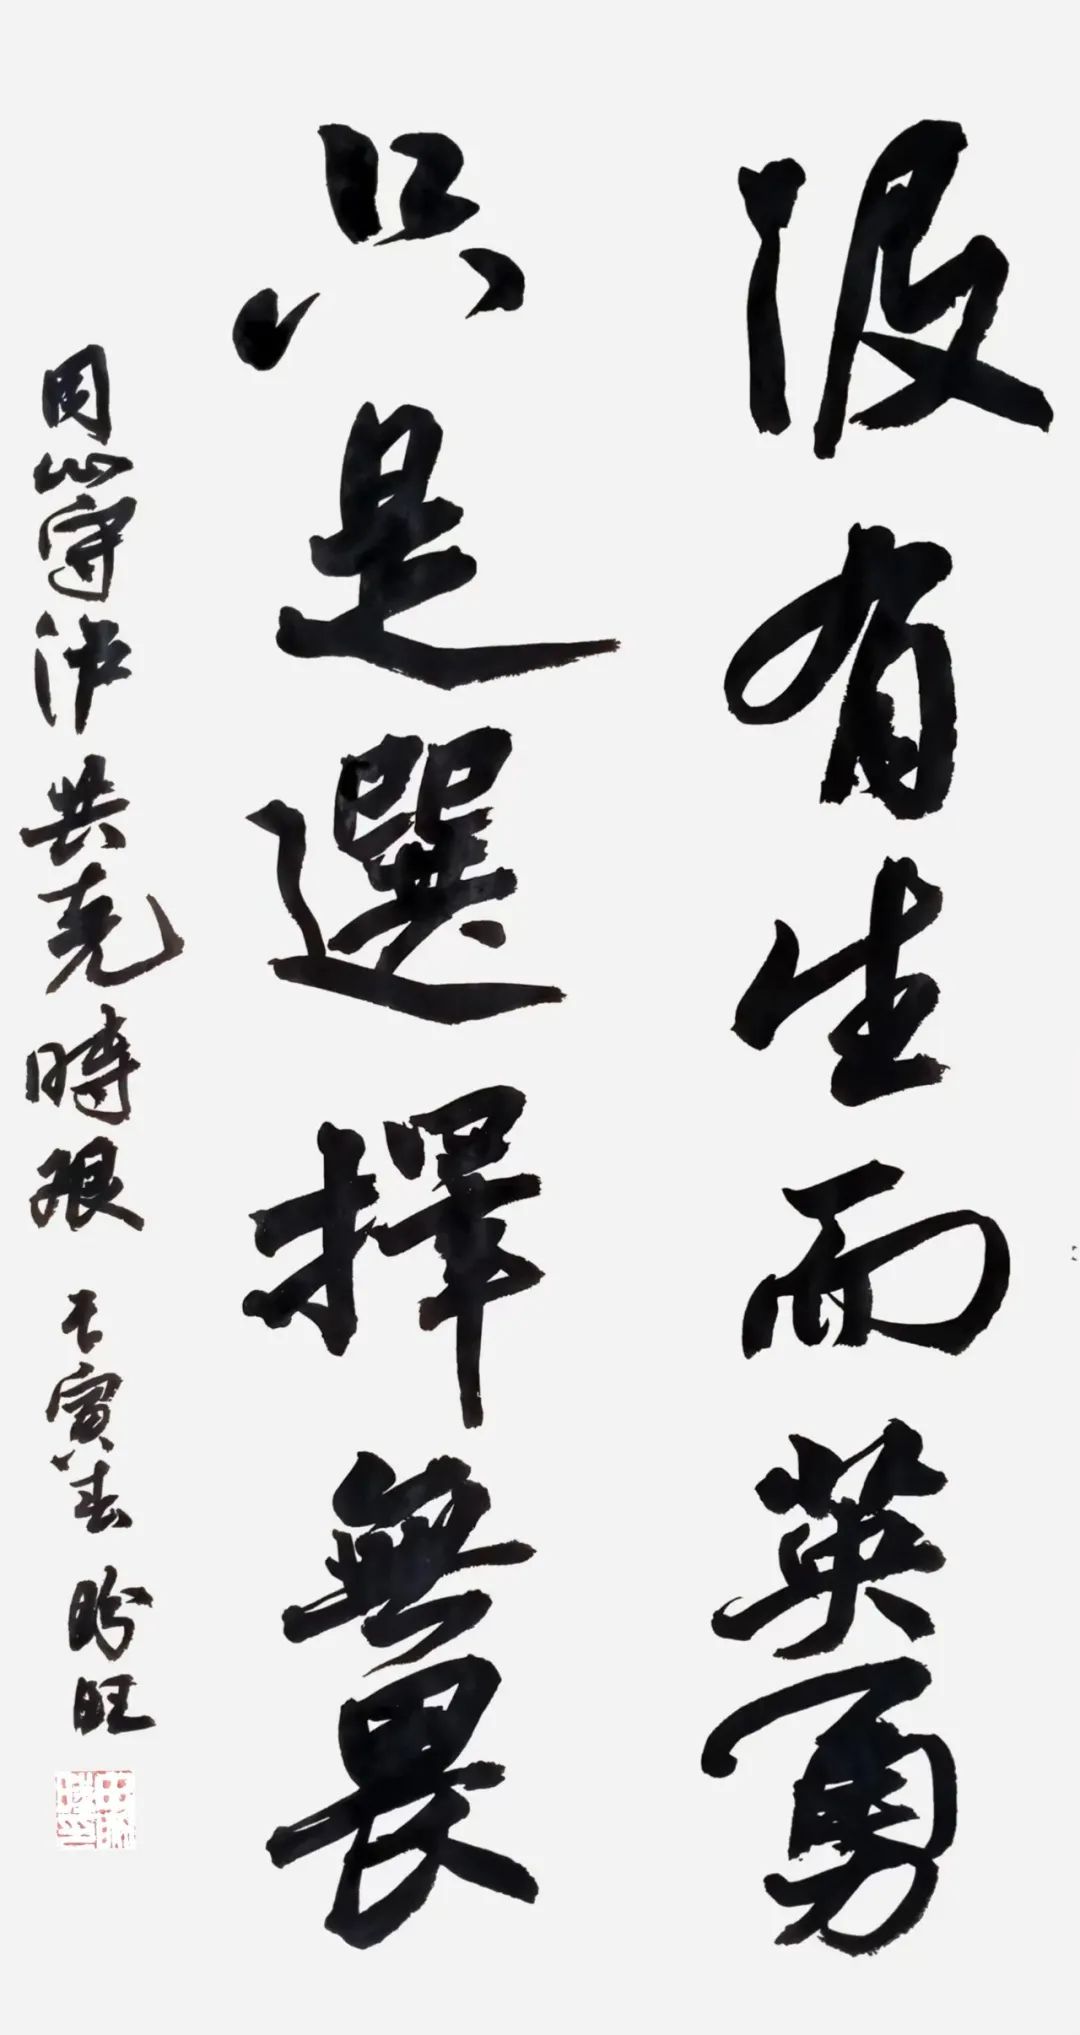 没有生而英勇
只是選擇無畏
同心守沪共克時艰 壬寅春 盼旺